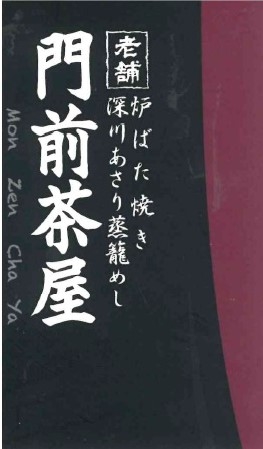 老舗
炉ばた焼き
深川あさり蒸籠めし
門前茶屋
Mon Zen Cha Ya